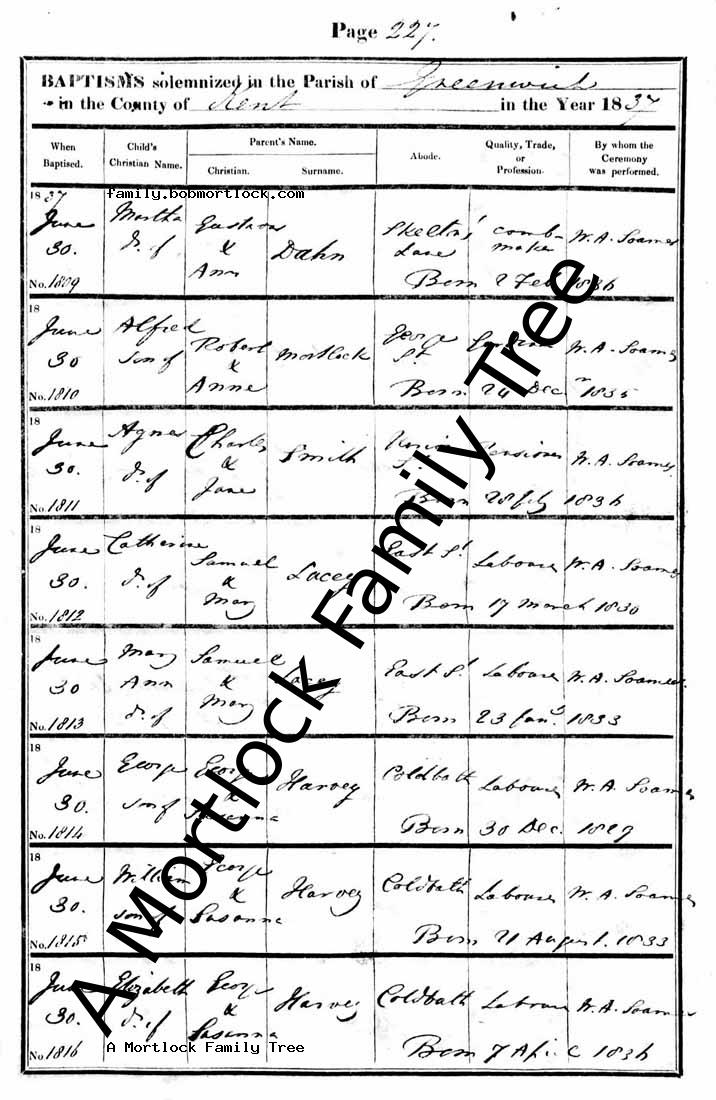 Page 227.
BAPTISMS solemnized in the Parish of Greenwich
in the County of Kent in the Year 1837
When Baptised.
Child's Christian Name.
Parent's Name.
Christian. Surname.
Abode.
Quality, Trade, or Profession.
By whom the Ceremony was performed.
family.bobmortlock.com
1837 June 30. No. 1809
Martha d. of
& Ann
Dahn
Skelton's Lane
comb-maker
W. A. Soames
Born 2 Feb 1836
18 June 30 No. 1810
Alfred son of
Robert & Anne
Mortlock
George St.
W. A. Soames
Born 24 Dec 1835
18 June 30. No. 1811
Agnes d. of
Charles & Jane
Smith
Pensioner
W. A. Soames
Born 1836
18 June 30. No. 1812
Catherine d. of
Samuel & Mary
Lacey
East St.
Labourer
W. A. Soames
Born 17 March 1830
18 June 30 No. 1813
Mary Ann d. of
Samuel & Mary
Lacey
East St.
Labourer
W. A. Soames
Born 23 Jany 1833
18 June 30. No. 1814
George son of
George & Susanna
Harvey
Coldbath
Labourer
W. A. Soames
Born 30 Dec. 1829
18 June 30. No. 1815
William son of
George & Susanna
Harvey
Coldbath
Labourer
W. A. Soames
Born 21 August. 1833
18 June 30. No. 1816
Elizabeth d. of
George & Susanna
Harvey
Coldbath
Labourer
W. A. Soames
Born 7 April 1836
A Mortlock Family Tree
A Mortlock Family Tree